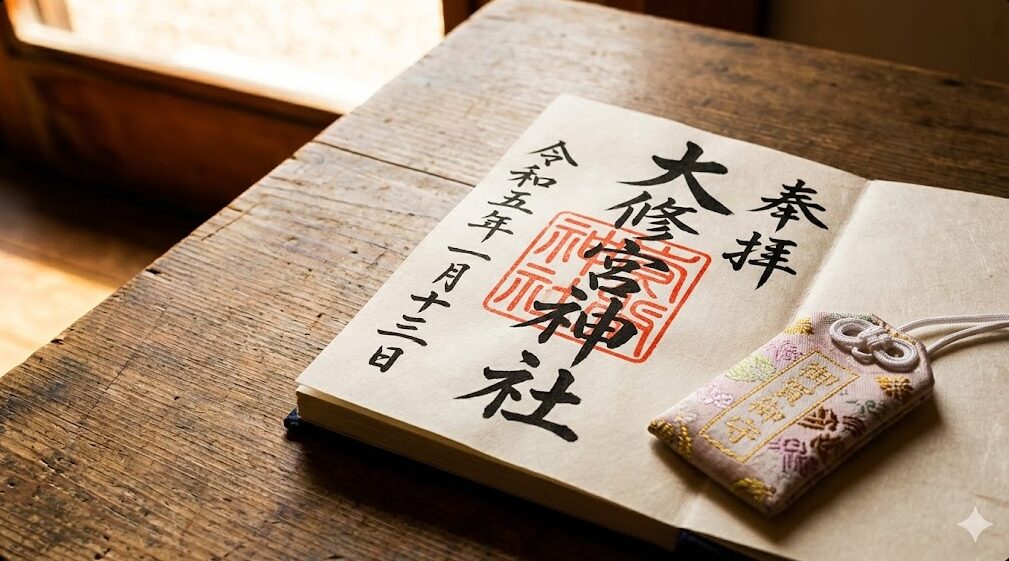 奉拝
大修宮神社
令和五年一月十三日
神社
御守